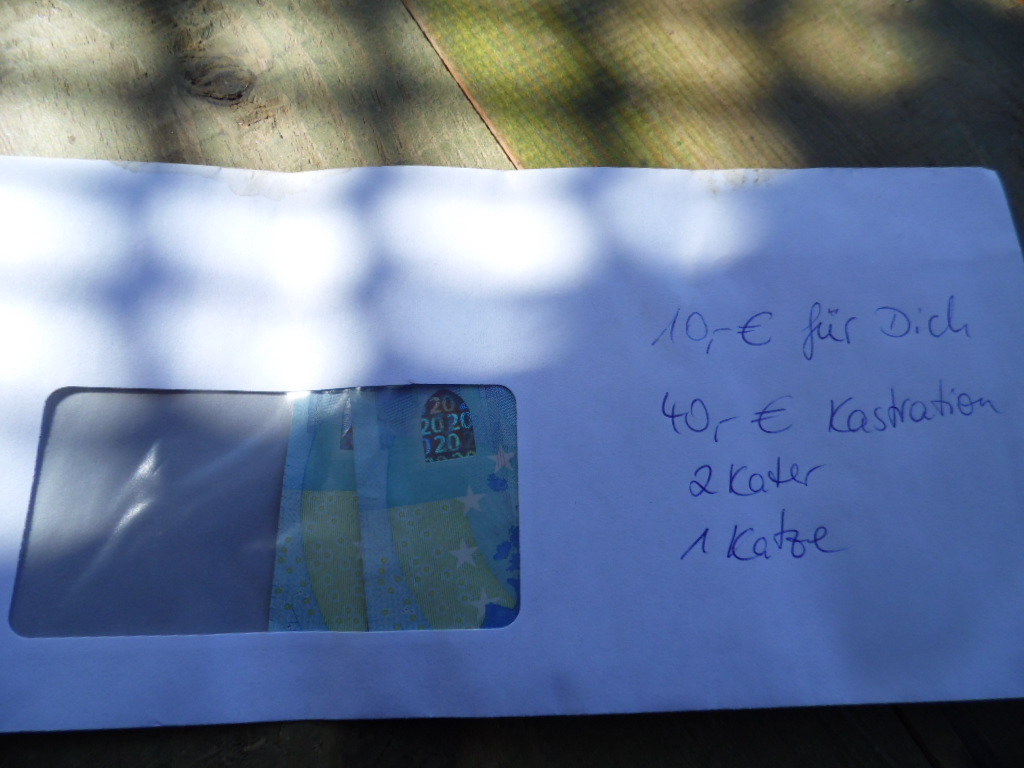 10,- € für Dich
40,- € Kastration
2 Kater
1 Katze
20
20 20
20